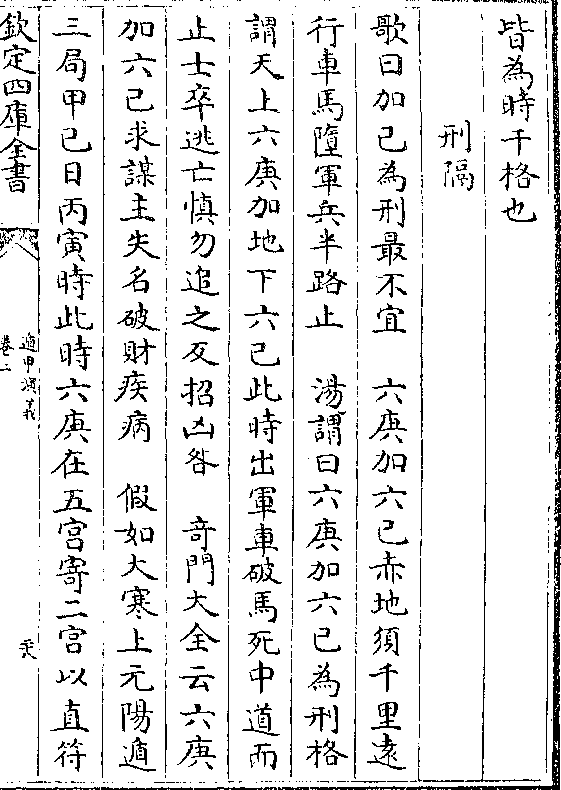 皆為時干格也
刑隔
歌曰加己為刑最不宜　六庚加六己赤地須千里遠
行車馬墮軍兵半路止　湯謂曰六庚加六己為刑格
謂天上六庚加地下六己此時出軍車破馬死中道而
止士卒逃亡慎勿追之反招凶咎　奇門大全云六庚
加六己求謀主失名破財疾病　假如大寒上元陽遁
三局甲己日丙寅時此時六庚在五宮寄二宮以直符
欽定四庫全書
遁甲演義
卷二
二十八